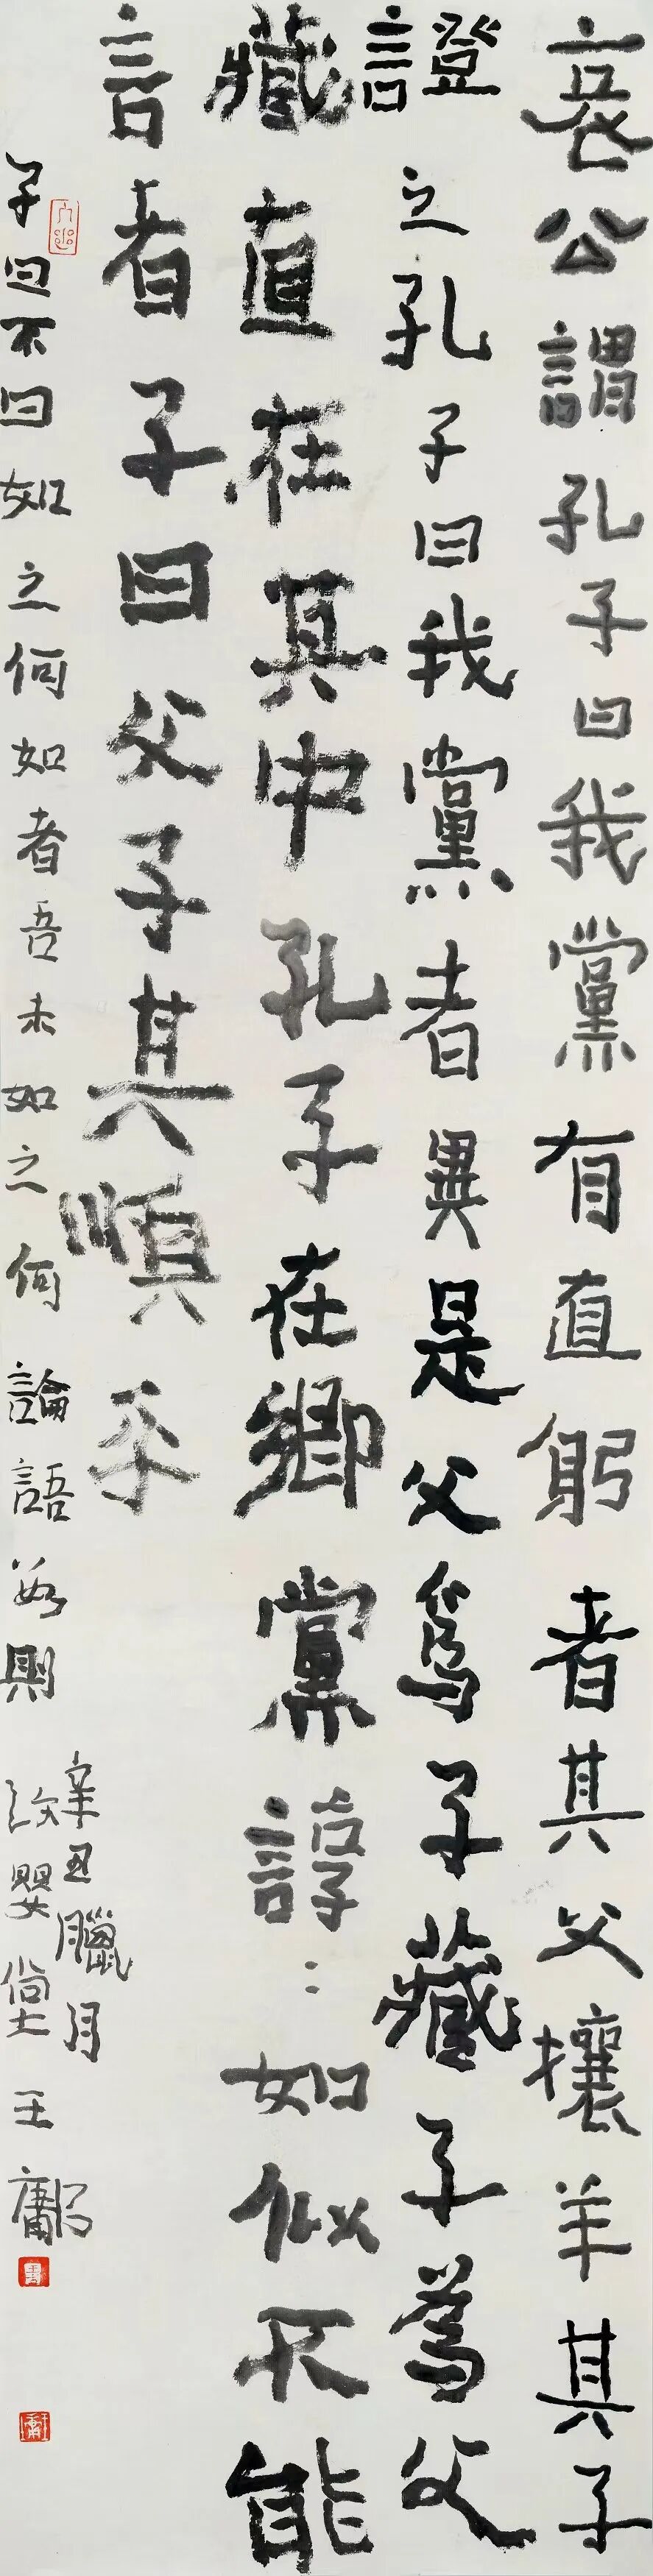 哀公謂孔子曰我黨有直躬者其父攘羊其子
證之孔子曰我黨者異是父爲子藏子爲父
藏直在其中孔子在鄉黨諄:如似不能
言者子曰父子其順乎
子曰不曰如之何如者吾未如之何論語数則
辛丑臘月
嬰堂王